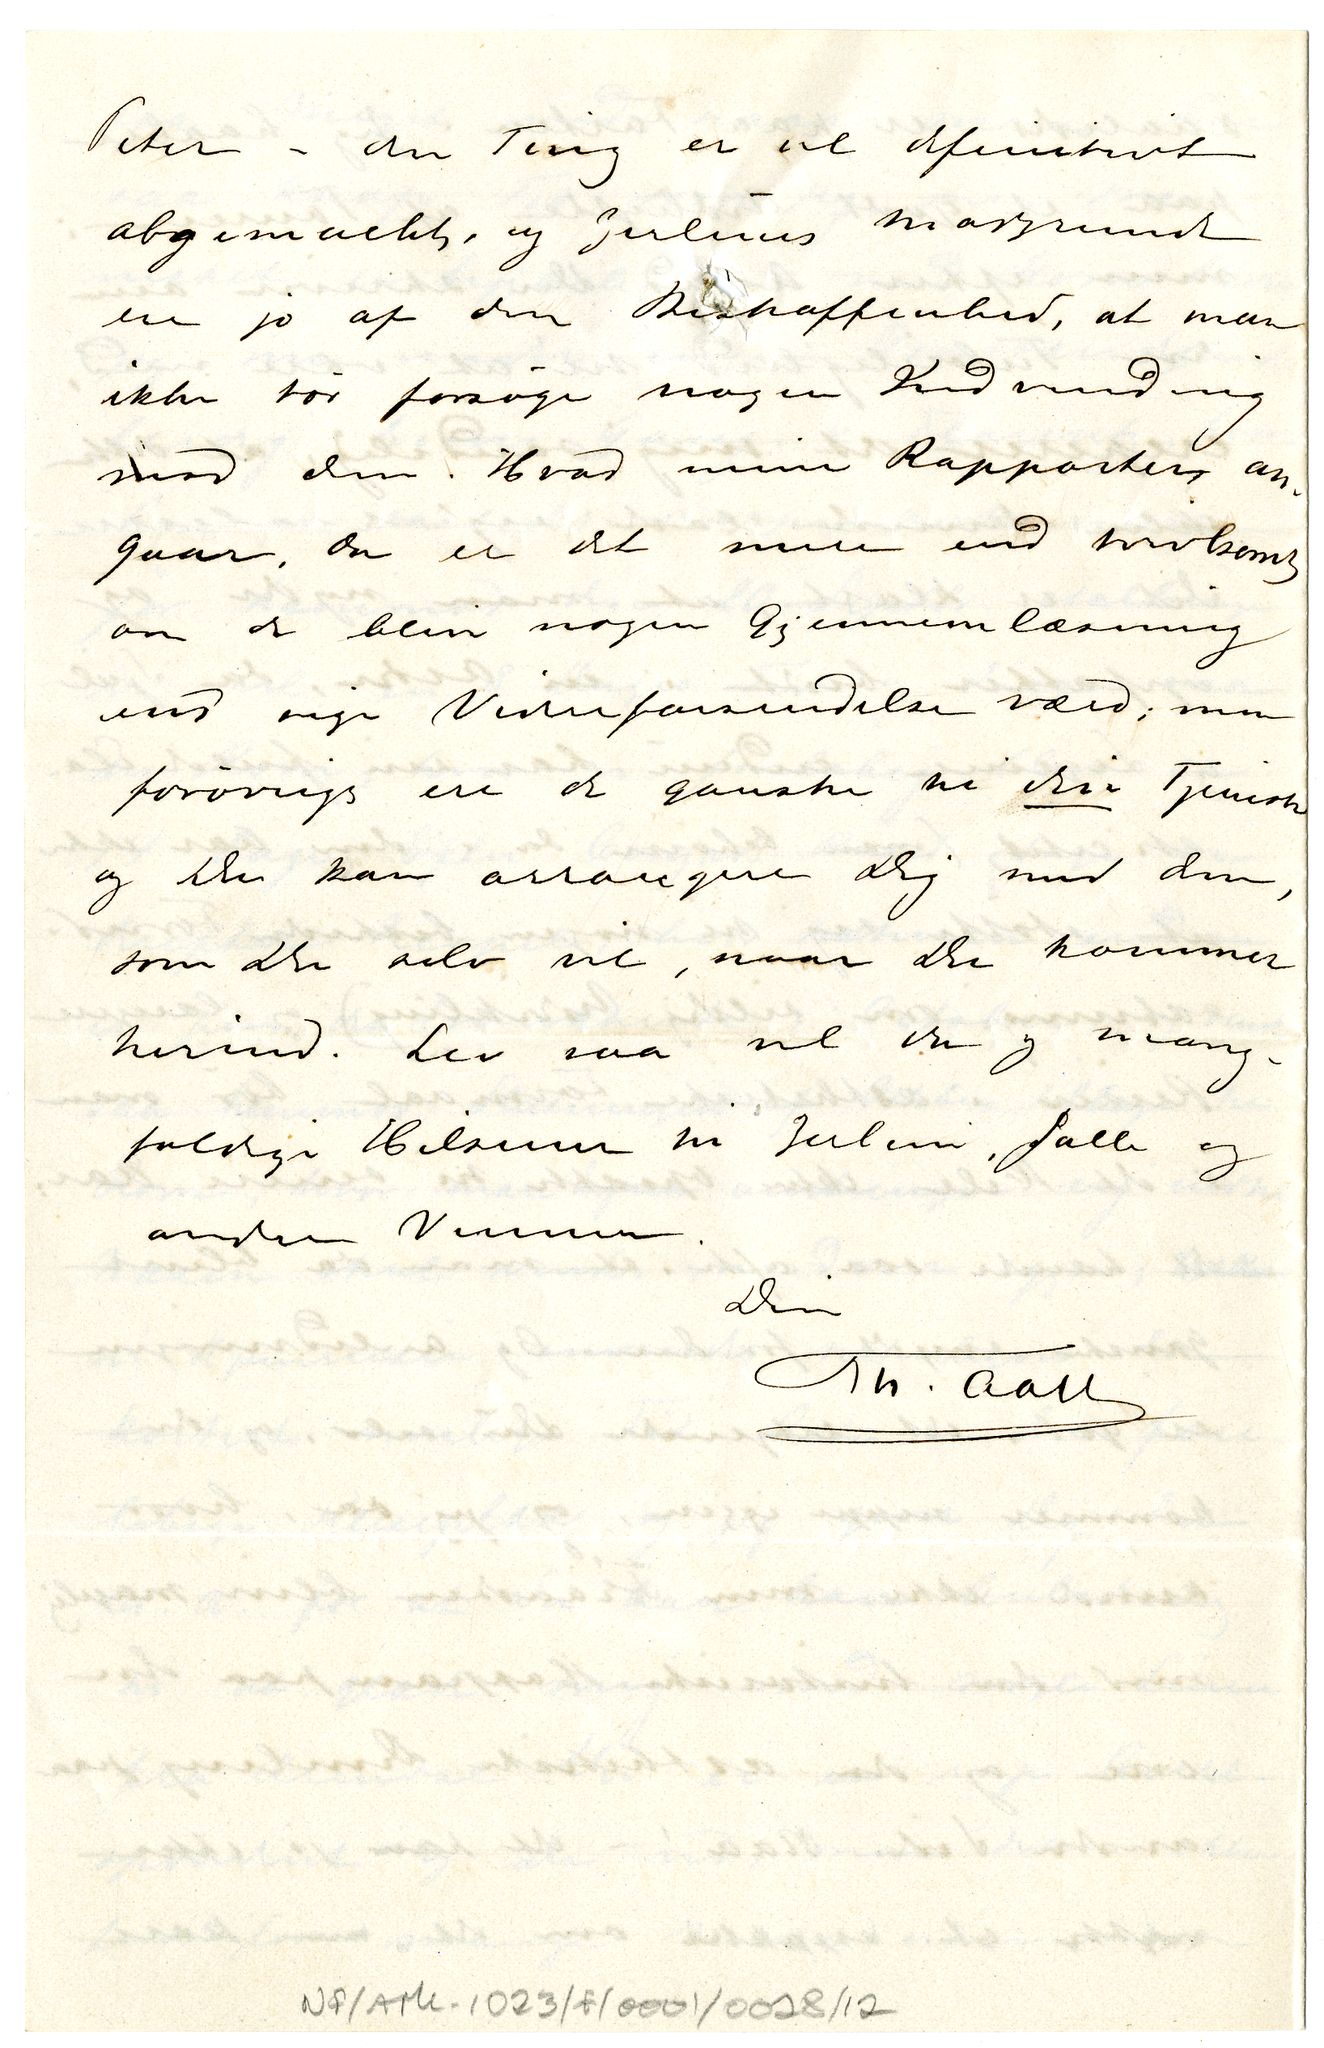 Peter – den Ting er vel definitivt
abgemacht, og Julius's Modgrunde
ere jo af den Beskaffenhed, at man
ikke tør forsøge nogen Indvending
mod dem. Hvad mine Rapporter an-
gaar, da er det mere end tvivlsomt
om de blive nogen Gjennemlæsning
end sige Videreforsendelse værd; men
forøvrigt ere de ganske til din Tjeneste
og Du kan arrangere Dig med dem,
som Du selv vil, naar Du kommer
herind. Lev saa vel da og mang-
foldige Hilsener til Julius, Palle og
andre Venner.
Din
Th. Aall
NF/Ark-1023/F/0001/0028/12